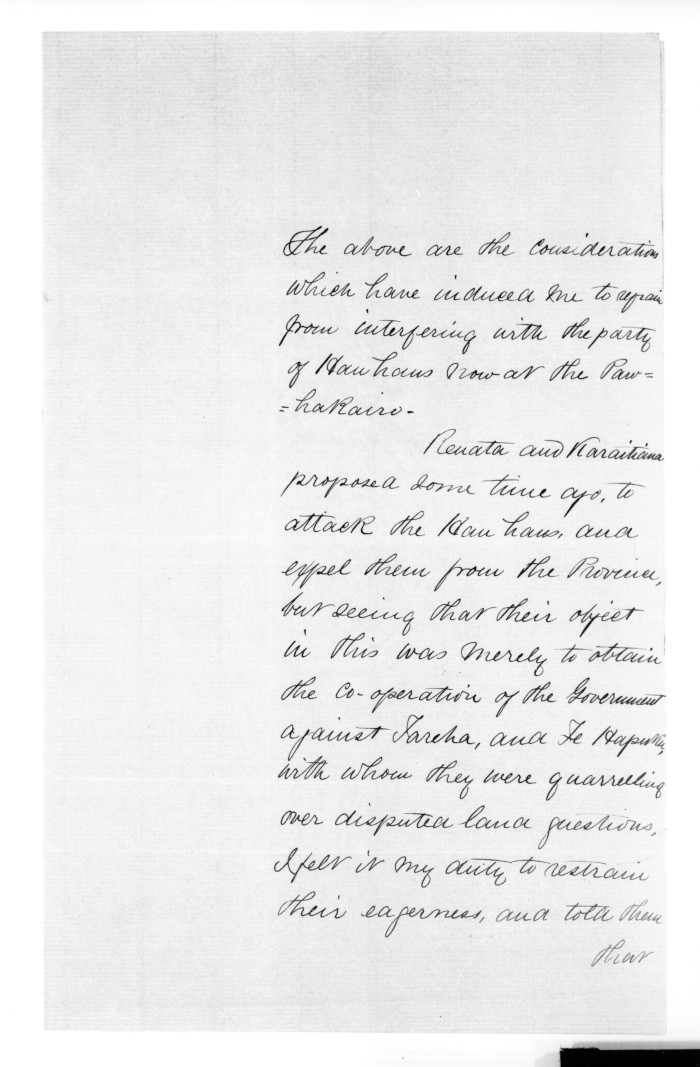 The above are the considerations
which have induced me to refrain
from interfering with the party
of Hau haus now at the Paw=
=hakairo-
Renata and Karaitiana
proposed some time ago, to
attack the Hau haus, and
expel them from the Province,
but seeing that their object
in this was merely to obtain
the co-operation of the Government
against Tareha, and Te Hapuku,
with whom they were quarrelling
over disputed land questions,
I felt it my duty to restrain
their eagerness, and told them
that